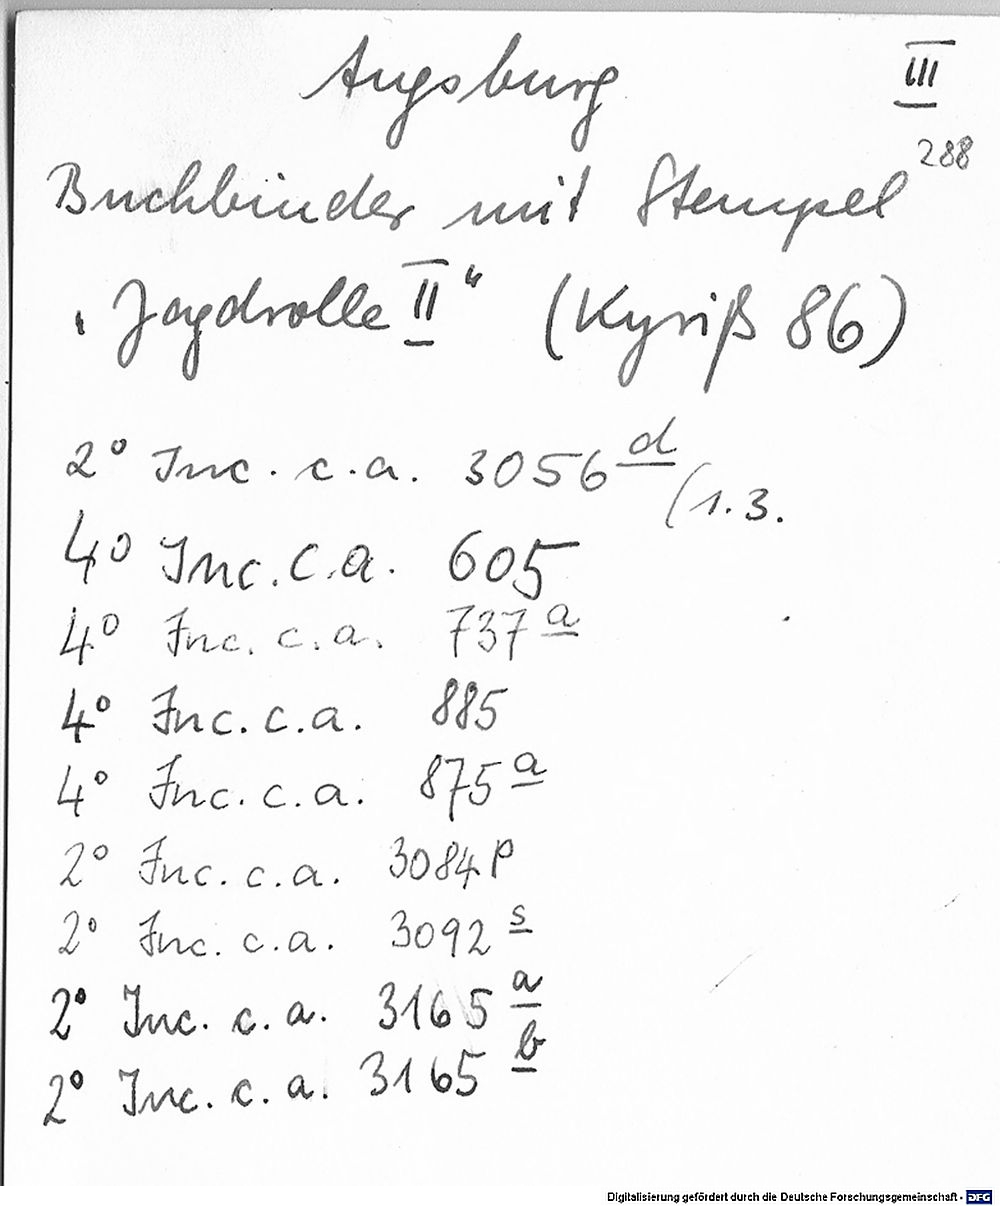 Augsburg III
288
Buchbinder mit Stempel
"Jagdrolle II" (Kyriß 86)
2° Inc. c.a. 3056 d
(1.3.
4° Inc. c.a. 605
4° Inc. c.a. 737 a
4° Inc. c.a. 885
4° Inc. c.a. 875 a
2° Inc. c.a. 3084 p
2° Inc. c.a. 3092 s
2° Inc. c.a. 3165 a
2° Inc. c.a. 3165 b
Digitalisierung gefördert durch die Deutsche Forschungsgemeinschaft - DFG